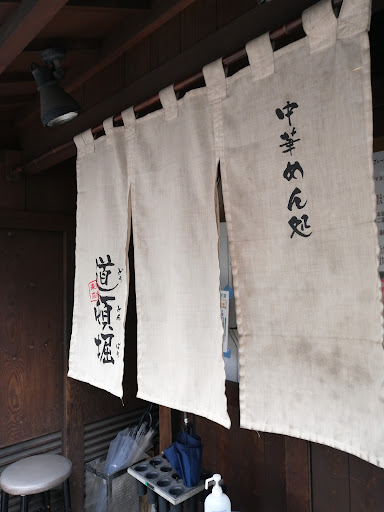 中華めん処
道頓堀
どうとんぼり